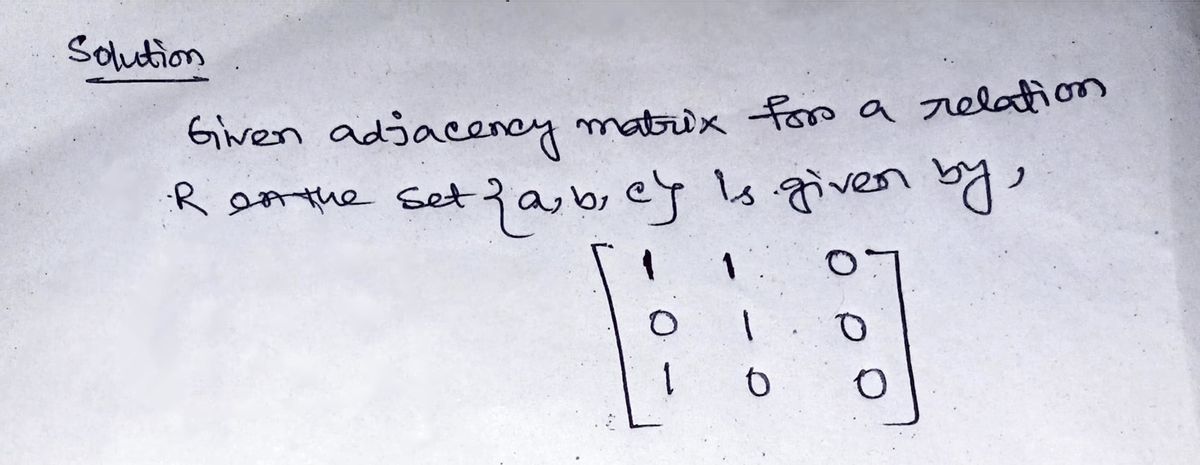 Solution
Given adjacency matrix for a relation
R on the set {a, b, c} is given by,
1 1 0
0 1 0
1 0 0